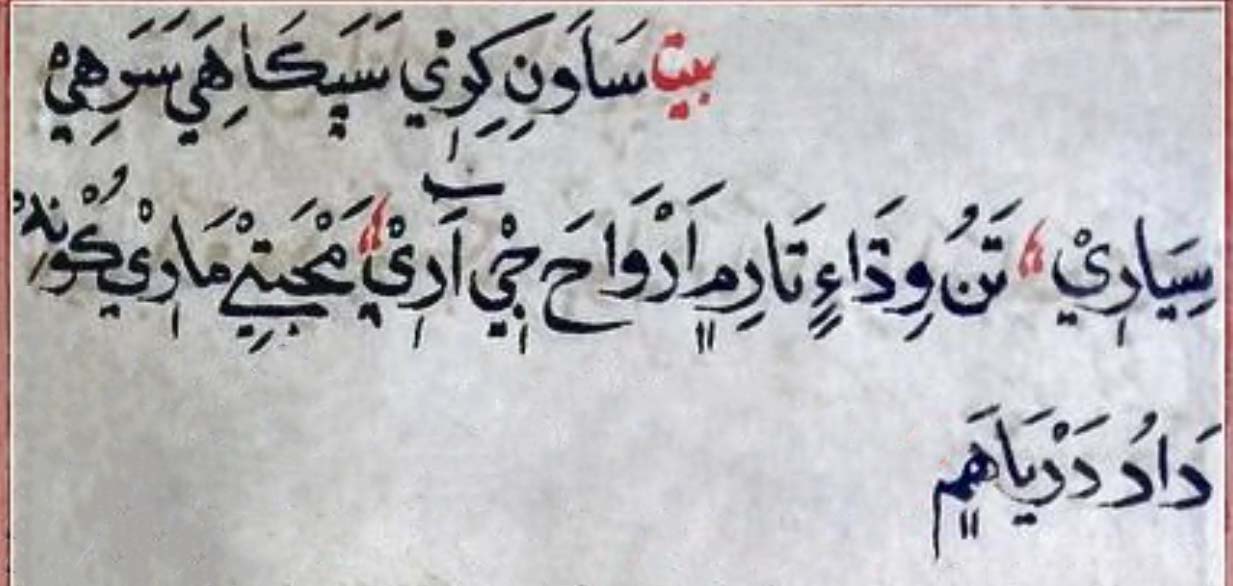 بيت سَاوَنِ کِوِي سَپِکَا هِيَ سَوَهِيْ
سِيَارِيْ ؛ تَنُ وِڌَاءٍ تَارِمٍ اَرْوَاحَ جِيْ اَرِيْ ؛ مَحْبَتِيْ مَارِيْ کُوْنِهْ
دَادُ دَرْيَاهَمٍ